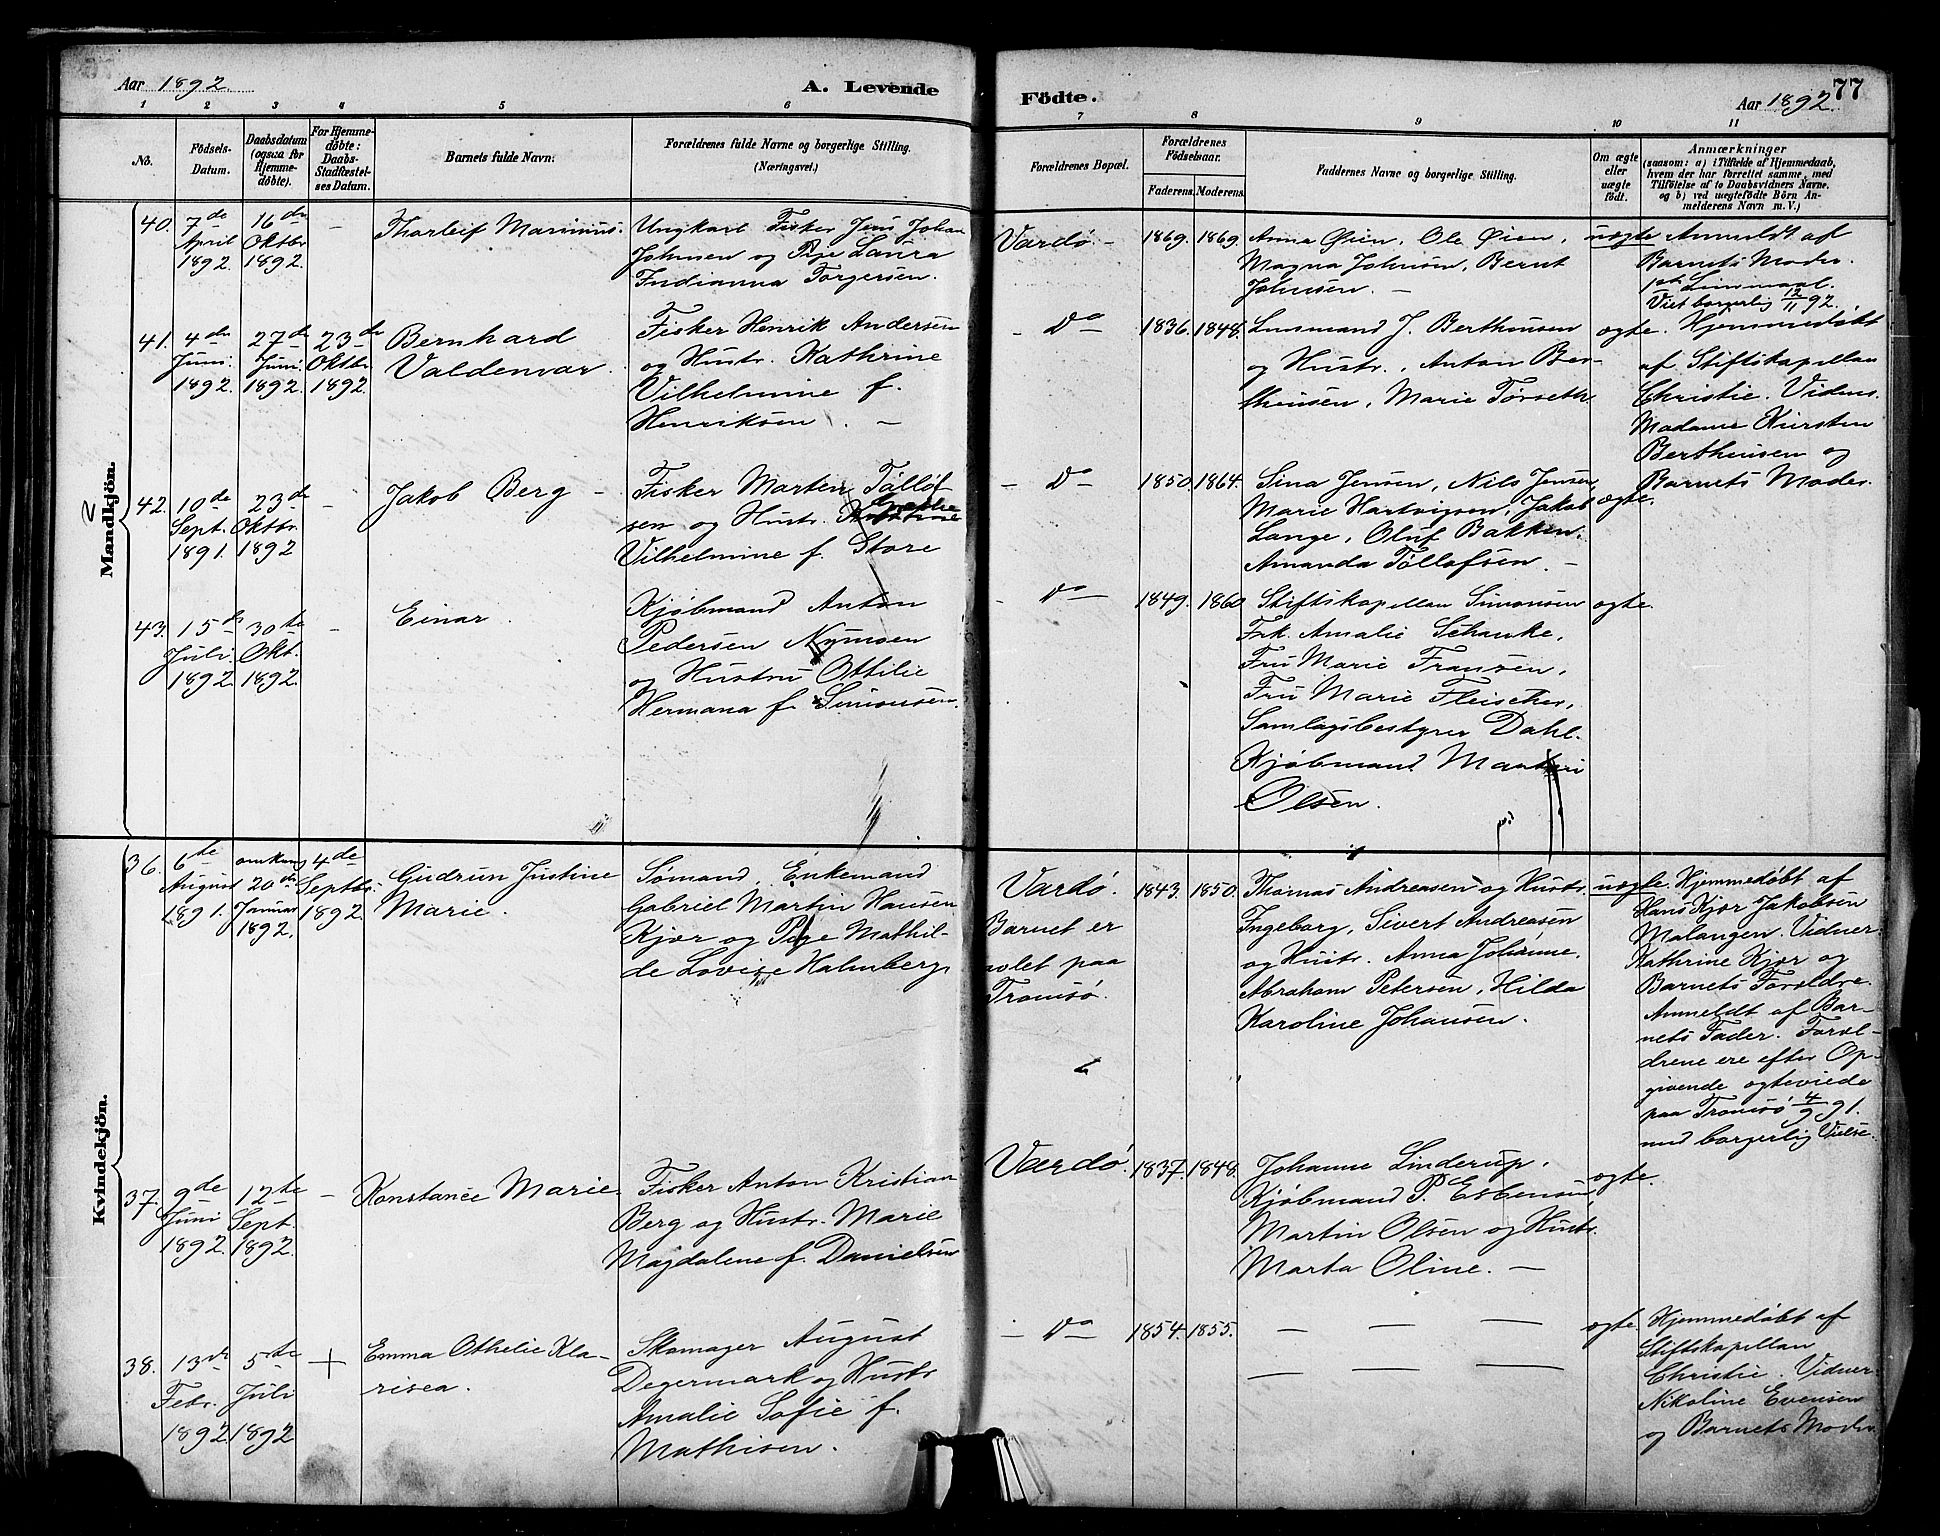 Aar 1892.
A. Levende
Födte.
Aar 1892.
77
1 2 3 4 5 6 7 8 9 10 11
No.
Födsels-
Datum.
Daabsdatum
(ogsaa for
Hjemme-
døbte).
For Hjemme-
døbte:
Daabs-
Stadfæstel-
ses Datum.
Barnets fulde Navn.
Forældrenes fulde Navne og borgerlige Stilling.
(Næringsvei.)
Forældrenes Bopæl.
Forældrenes
Fødselsaar.
Faderens.
Moderens.
Faddernes Navne og borgerlige Stilling.
Om ægte
eller
uægte
født.
Anmærkninger
(saasom: a) i Tilfælde af Hjemmedaab,
hvem der har forrettet samme, med
Tilføielse af to Daabsvidners Navne,
og b) ved uægtefødte Börn An-
melderens Navn m. V.)
Mandkjön.
40.
7de
April
1892.
16de
Oktbr
1892.
-
Tharleif Marinius.
Ungkarl Fisker Jens Johan
Johnsen og Pige Laura
Indianna Torgersen.
Vardø -
1869.
1869.
Anna Øien, Ole Øien,
Magna Johnsen, Bernt
Johnsen. -
uægte
Anmeldt af
Barnets Moder.
1ste Leiermaal.
Viet borgerlig 12/11 92.
41.
4de
Juni
1892.
27de
Juni
1892.
23de
Oktbr
1892.
Bernhard
Valdemar.
Fisker Henrik Andersen
og Hustr. Kathrine
Vilhelmine f.
Henriksen. -
- Do -
1836.
1848.
Lensmand J. Berthensen
og Hustr., Anton Ber-
thensen, Marie Torseth.
ægte.
Hjemmedøbt
af Stiftskapellan
Christie. Vidner
Madame Kirsten
Berthensen og
Barnets Moder.
42.
10de
Sept.
1891.
23de
Oktbr.
1892
-
Jakob Berg -
Fisker Marten Tøllef-
sen og Hustr.
Vilhelmine f. Store
- Do -
1850.
1864.
Sina Jensen, Nils Jensen
Marie Hartvigsen, Jakob
Lange, Oluf Bakken,
Amanda Tøllefsen. -
ægte.
43.
15de
Juli
1892.
30te
Okt.
1892.
-
Einar.
Kjøbmand Anton
Pedersen Nymoen
og Hustru Ottilie
Hermana f. Simonsen.
- Do -
1849.
1860
Stiftskapellan Simonsen
Frk. Amalie Schanke,
Fru Marie Fransen,
Fru Marie Fleischer,
Samlagsbestyrer Dahl.
Kjøbmand
Olsen.
ægte.
Kvindekjön.
36.
6te
August
1891.
omkring
20de
Januar
1892.
4de
Septbr.
1892.
Gudrun Justine
Marie.
Sømand, Enkemand
Gabriel Martin Hansen
Kjær og Pige Mathil-
de Lovise Halmberg
Vardø.
Barnet er
avlet paa
Tromsø.
1843.
1850.
Thomas Andreasen og Hustr.
Ingeborg, Sivert Andreasen
og Hustr. Anna Johanne.
Abraham Petersen, Hilda
Karoline Johansen.
uægte.
Hjemmedøbt af
Hans Kjær Jakobsen
Malangen. Vidner
Kathrine Kjær og
Barnets Forældre.
Anmeldt af Bar-
nets Fader. Foræl-
drene ere efter Op-
givende ægteviede
paa Tromsø 4/9 91.
med borgerlig Vielse.
37.
9de
Juni
1892.
12te
Sept.
1892.
-
Konstance Marie.
Fisker Anton Kristian
Berg og Hustr. Marie
Magdalene f. Danielsen
Vardø.
1837.
1848.
Johanne Linderup,
Kjøbmand P. Esbensen,
Martin Olsen og Hustr.
Marta Oline. -
ægte.
38.
13de
Febr.
1892.
5te
Juli
1892
+
Emma Othelie Kla-
risea.
Skomager August
Degermark og Hustr.
Amalie Sofie f.
Mathisen.
- Do -
1854.
1855.
ægte.
Hjemmedøbt af
Stiftskapellan
Christie. Vidner
Nikoline Evensen
og Barnets Moder